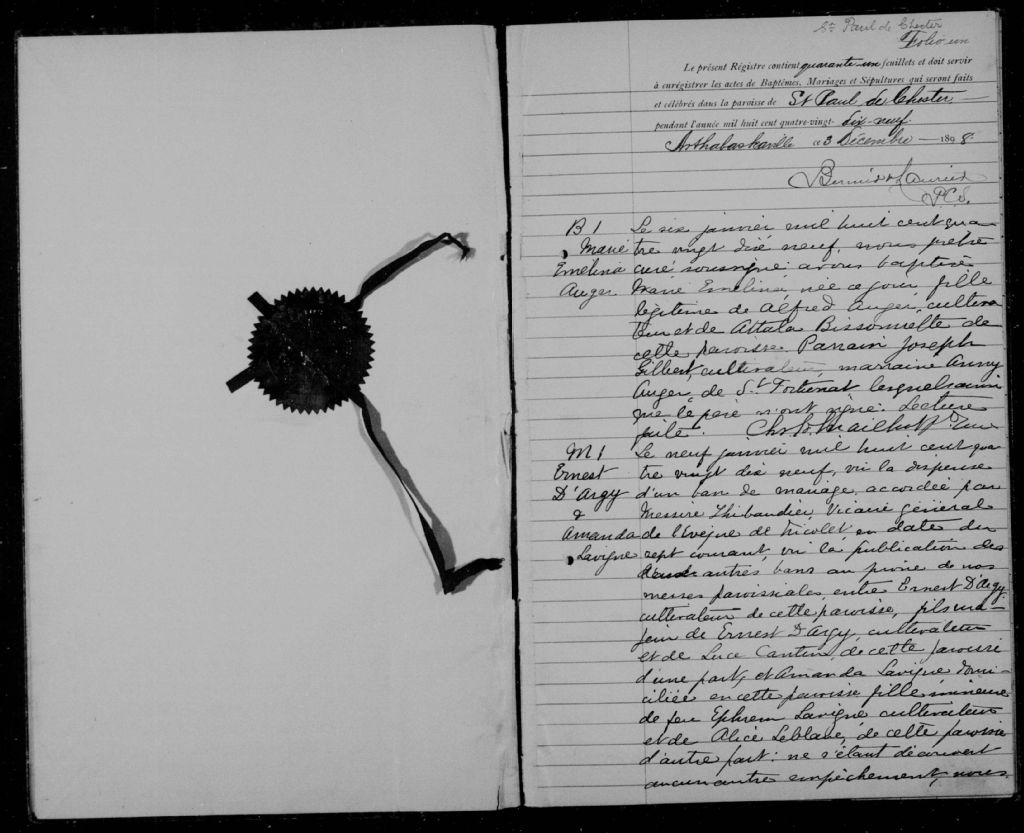 St Paul de Chester
Folio un
Le présent Régistre contient quarante-un feuillets et doit servir
à enrégistrer les actes de Baptêmes, Mariages et Sépultures qui seront faits
et célébrés dans la paroisse de St Paul de Chester —
pendant l'année mil huit cent quatre-vingt- dix-neuf.
Arthabaskaville ce 3 Décembre — 1898.
P.C.S.
B 1
Marie
Emélina
Auger
Le six janvier mil huit cent qua
tre vingt dix neuf, nous prêtre
curé soussigné avons baptisé
Marie Emélina, née ce jour fille
légitime de Alfred Auger, cultiva
teur et de Attala Bissonnette de
cette paroisse. Parrain Joseph
Gilbert, cultivateur, marraine Anny
Auger, de St Fortunat lesquels ainsi
que le père n'ont signé. Lecture
faite.
M 1
Ernest
D'Argy
&
Amanda
Lavigne
Le neuf janvier mil huit cent qua
tre vingt dix neuf, vu la dispense
d'un ban de mariage accordée par
Messire Thibaudier Vicaire général
de l'Evêque de Nicolet en date du
sept courant, vu la publication des
deux autres bans au prône de nos
messes paroissiales, entre Ernest D'Argy
cultivateur de cette paroisse, fils ma-
jeur de Ernest D'Argy, cultivateur
et de Luce Cantin, de cette paroisse
d'une part, et Amanda Lavigne domi-
ciliée en cette paroisse fille mineure
de feu Ephrem Lavigne cultivateur
et de Alice Leblanc, de cette paroisse
d'autre part: ne s'étant découvert
aucun autre empêchement, nous